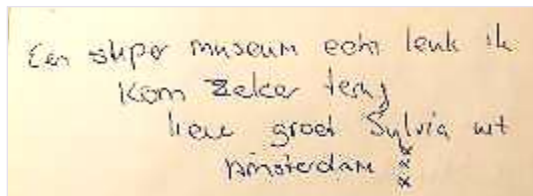 Een super museum echt leuk ik
kom zeker terug
lieve groet Sylvia uit
Amsterdam xxx